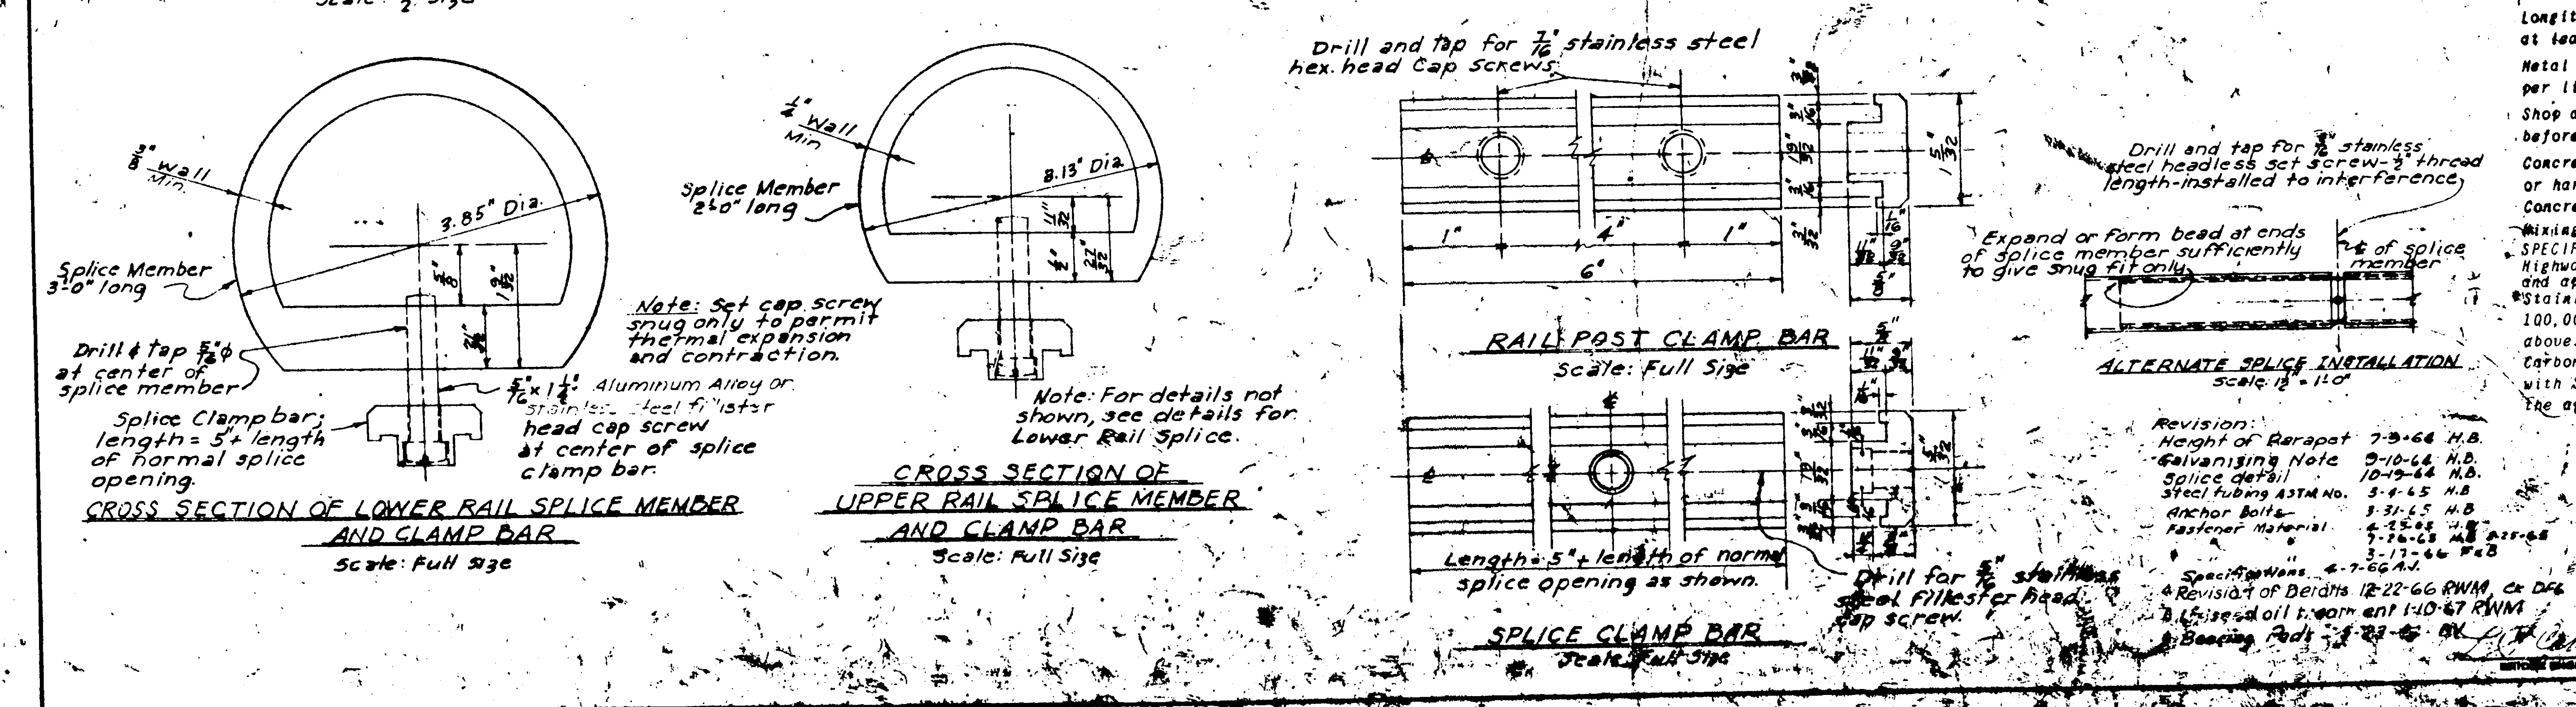 Scale: 1/2 Size
3/8" Wall
Min.
3.85" Dia.
Splice Member
3'-0" long
5/8"
1 9/32"
21/32"
Drill & tap 5/16"φ
at center of
splice member
Splice Clamp bar;
length = 5" + length
of normal splice
opening.
5/16" x 1 1/4" Aluminum Alloy or
stainless steel fillister
head cap screw
at center of splice
clamp bar.
Note: Set cap screw
snug only to permit
thermal expansion
and contraction.
CROSS SECTION OF LOWER RAIL SPLICE MEMBER
AND CLAMP BAR
Scale: Full Size
1/4" Wall
Min.
3.13" Dia.
Splice Member
2'-0" long
11/32"
1/2"
27/32"
Note: For details not
shown, see details for
Lower Rail Splice.
CROSS SECTION OF
UPPER RAIL SPLICE MEMBER
AND CLAMP BAR
Scale: Full Size
Drill and tap for 7/16" stainless steel
hex. head Cap Screws
3/32"
3/16"
19/32"
3/16"
3/32"
1 5/32"
1/16"
11/32"
9/32"
5/8"
1"
4"
1"
6"
RAIL POST CLAMP BAR
Scale: Full Size
5/8"
11/32"
9/32"
1/16"
3/32"
3/16"
19/32"
3/16"
3/32"
1 5/32"
Length = 5" + length of normal
splice opening as shown.
Drill for 5/16" stainless
steel fillester head
cap screw.
SPLICE CLAMP BAR
Scale Full Size
Drill and tap for stainless
steel headless set screw - 1/2" thread
length-installed to interference
Expand or form bead at ends
of splice member sufficiently
to give snug fit only
℄ of splice
member
ALTERNATE SPLICE INSTALLATION
Scale 1 1/2" = 1'-0"
Revision:
Height of Parapet 7-9-64 H.B.
Galvanizing Note 9-10-64 H.B.
Splice detail 10-19-64 H.B.
Steel tubing ASTM No. 3-4-65 H.B
Anchor Bolts 3-31-65 H.B
Fastener Material
3-17-66
Specifications 4-7-66 A.J.
Revision of Details 12-22-66 RWM
1-10-67 RWM
Bearing Pads
Longit
at lea
Metal
per li
Shop d
before
Concre
or han
Concre
Mixing
SPECIF
Highwa
and ap
Stain
100,00
above.
Carbon
with
the a